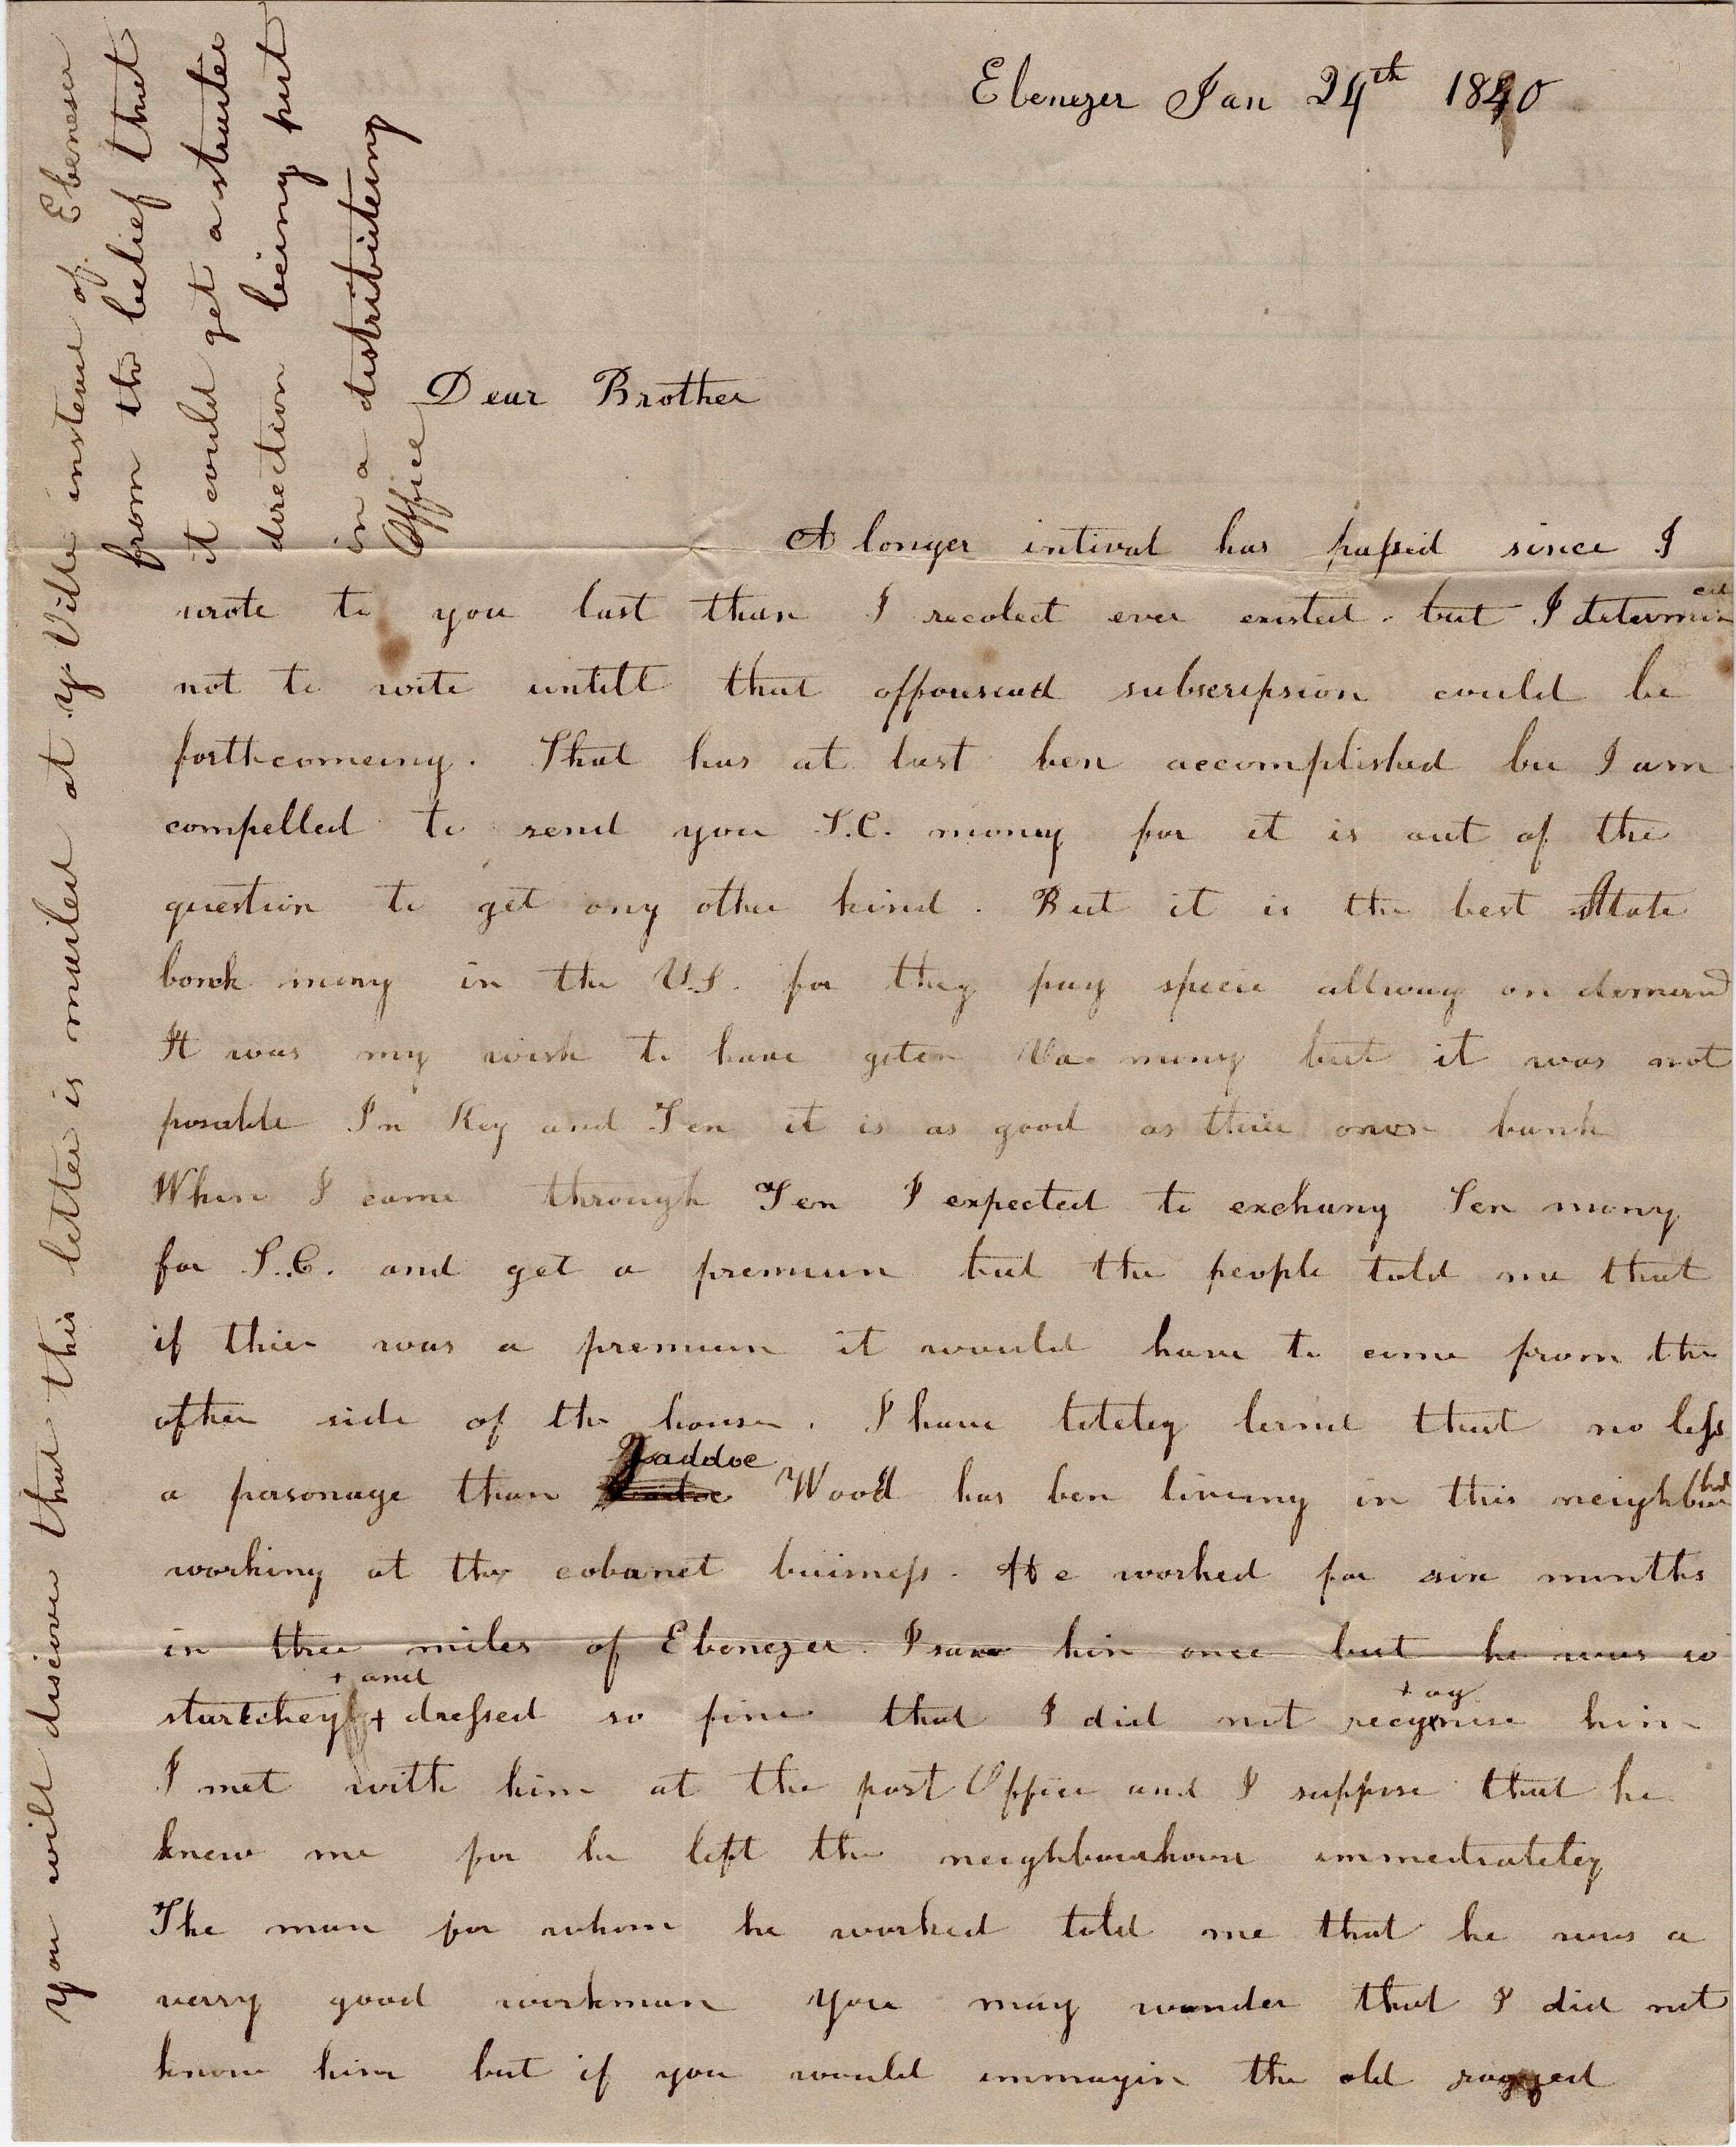 Ebenezer Jan 24th 1840
Dear Brother
A longer intival has passed since I
wrote to you last than I recolect ever existed. but I determined
not to write untill that afforesaid subscripsion could be
forthcomeing. That has at last ben accomplished bu I am
compelled to send you S.C. money for it is out of the
question to get ony other kind. But it is the best State
bonck mony in the U.S. for they pay specie allway on demand
It was my wish to have goten Va mony but it was not
posable In Key and Ten it is as good as thier own bank
When I came through Ten I expected to exchang Ten mony
for S.C. and get a premium but the people told me that
if thier was a premium it would have to come from the
other side of the house. I have lately lernd that no less
a personage than Jaddoe Wood has ben liveing in this neighbourhood
working at the cobanet buisness. He worked for six months
in three miles of Ebenezer. I saw him once but he was so
starkchey + and dressed so fine that I did not recognise him
I met with him at the post Office and I suppose that he
knew me for he left the neighbourhood immediately
The man for whom he worked told me that he was a
verry good workman you may wonder that I did not
know him but if you would immagin the old ragged
you will discover that this letter is mailed at yVille instead of Ebeneser
from the belief that
it could get a straiter
direction being put
in a distributeing
Office